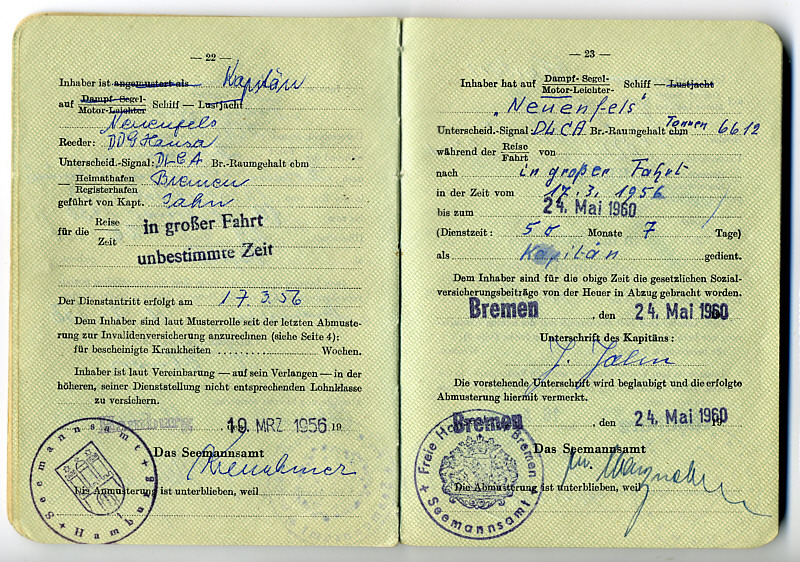 — 22 —
Inhaber ist angemustert als Kapitän
auf Dampf-Segel- Motor-Leichter Schiff — Lustjacht
Neuenfels
Reeder: DDG Hansa
Unterscheid.-Signal: DLCA Br.-Raumgehalt cbm
— Heimathafen Registerhafen Bremen
geführt von Kapt. Jahn
für die Reise Zeit in großer Fahrt
unbestimmte Zeit
Der Dienstantritt erfolgt am 17.3.56
Dem Inhaber sind laut Musterrolle seit der letzten Abmuste-
rung zur Invalidenversicherung anzurechnen (siehe Seite 4):
für bescheinigte Krankheiten Wochen.
Inhaber ist laut Vereinbarung — auf sein Verlangen — in der
höheren, seiner Dienststellung nicht entsprechenden Lohnklasse
zu versichern.
Hamburg, 19. MRZ 1956 19
Das Seemannsamt
Die Anmusterung ist unterblieben, weil
Seemannsamt Hamburg
— 23 —
Inhaber hat auf Dampf-Segel- Motor-Leichter- Schiff — Lustjacht
„Neuenfels"
Unterscheid.-Signal DLCA Br.-Raumgehalt cbm Tonnen 6612
während der Reise Fahrt von
nach in großer Fahrt
in der Zeit vom 17.3.1956
bis zum 24. Mai 1960
(Dienstzeit: 50 Monate 7 Tage)
als Kapitän gedient.
Dem Inhaber sind für die obige Zeit die gesetzlichen Sozial-
versicherungsbeiträge von der Heuer in Abzug gebracht worden.
Bremen, den 24. Mai 1960
Unterschrift des Kapitäns:
J. Jahn
Die vorstehende Unterschrift wird beglaubigt und die erfolgte
Abmusterung hiermit vermerkt.
Bremen, den 24. Mai 1960 19
Das Seemannsamt
Die Abmusterung ist unterblieben, weil
Freie Bremen
Seemannsamt